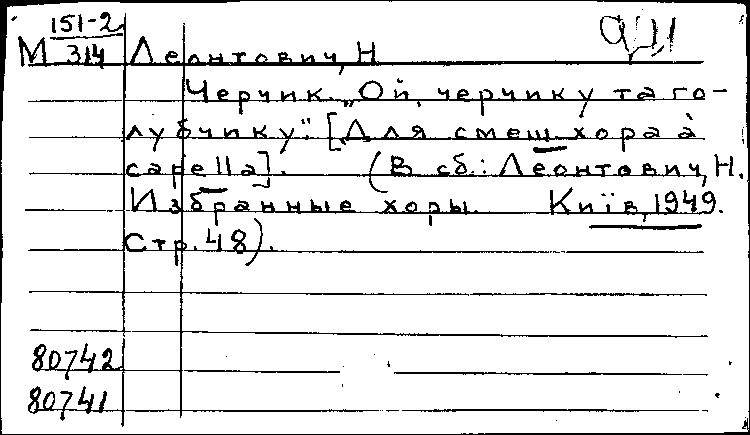 151-2
М 314 Леонтович, Н
Черчик. „Ой, черчику та го-
лубчику". [Для смеш. хора а
capella]. (В сб.: Леонтович, Н.
Избранные хоры. Київ, 1949.
Стр. 48).
80742
80741